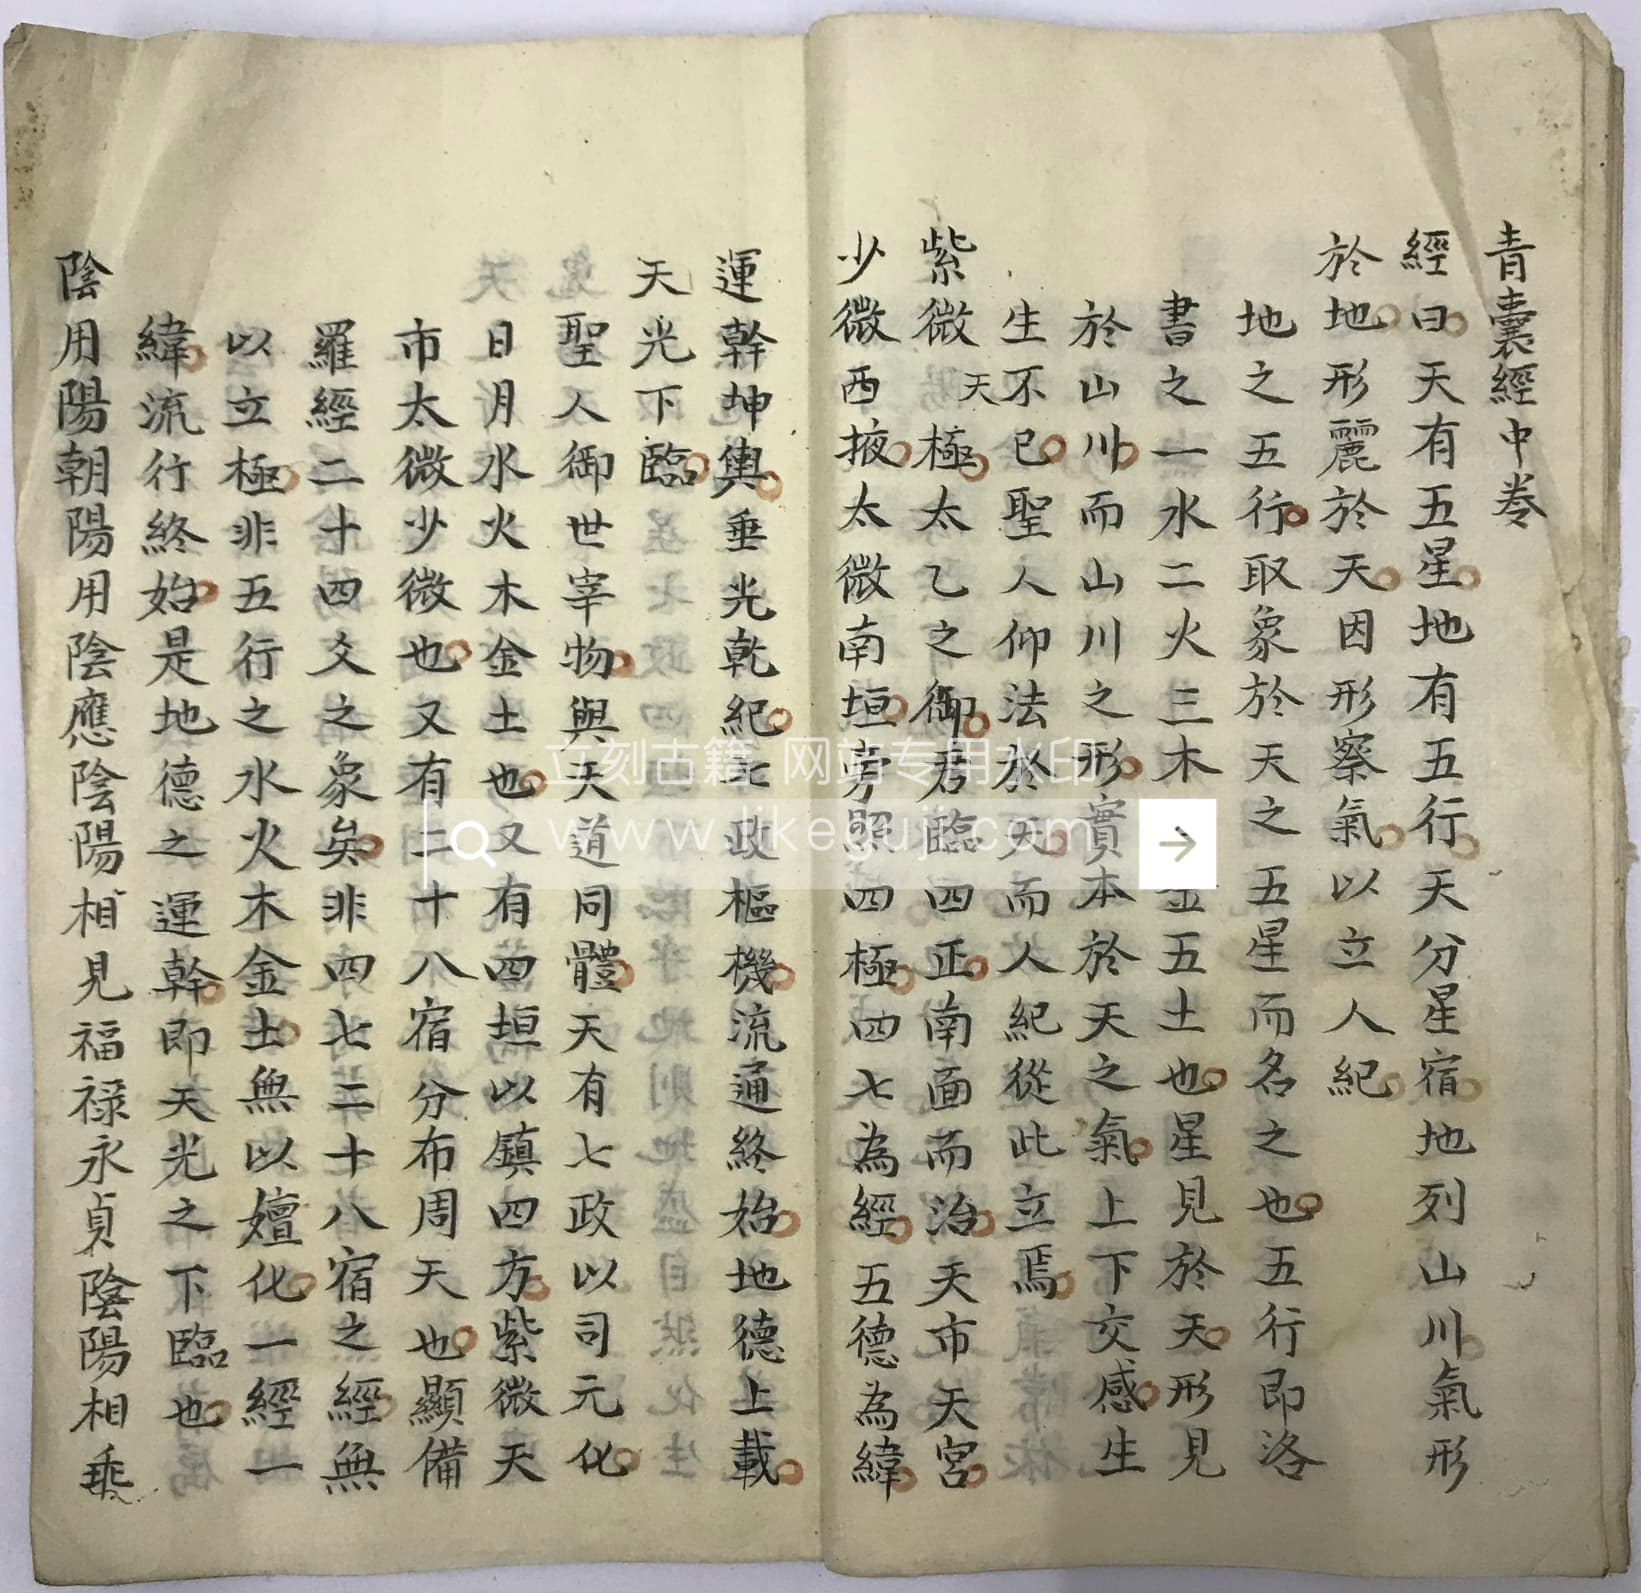 青囊經中卷
經曰天有五星地有五行天分星宿地列山川氣形
於地形麗於天因形察氣以立人紀
地之五行取象於天之五星而名之也五行即洛
書之一水二火三木金五土也星見於天形見
於山川而山川之形實本於天之氣上下交感生
生不已聖人仰法於天而人紀從此立焉
紫微天極太乙之御君臨四正南面而治天市天宮
少微西掖太微南垣旁照四極四七為經五德為緯
運幹坤輿垂光乾紀七政樞機流通終始地德上載
天光下臨
聖人御世宰物與天道同體天有七政以司元化
日月水火木金土也又有四垣以鎮四方紫微天
市太微少微也又有二十八宿分布周天也顯備
羅經二十四爻之象矣非四七二十八宿之經無
以立極非五行之水火木金土無以嬗化一經一
緯流行終始是地德之運幹即天光之下臨也
陰用陽朝陽用陰應陰陽相見福祿永貞陰陽相乘
立刻古籍 网站专用水印
www.likeguji.com